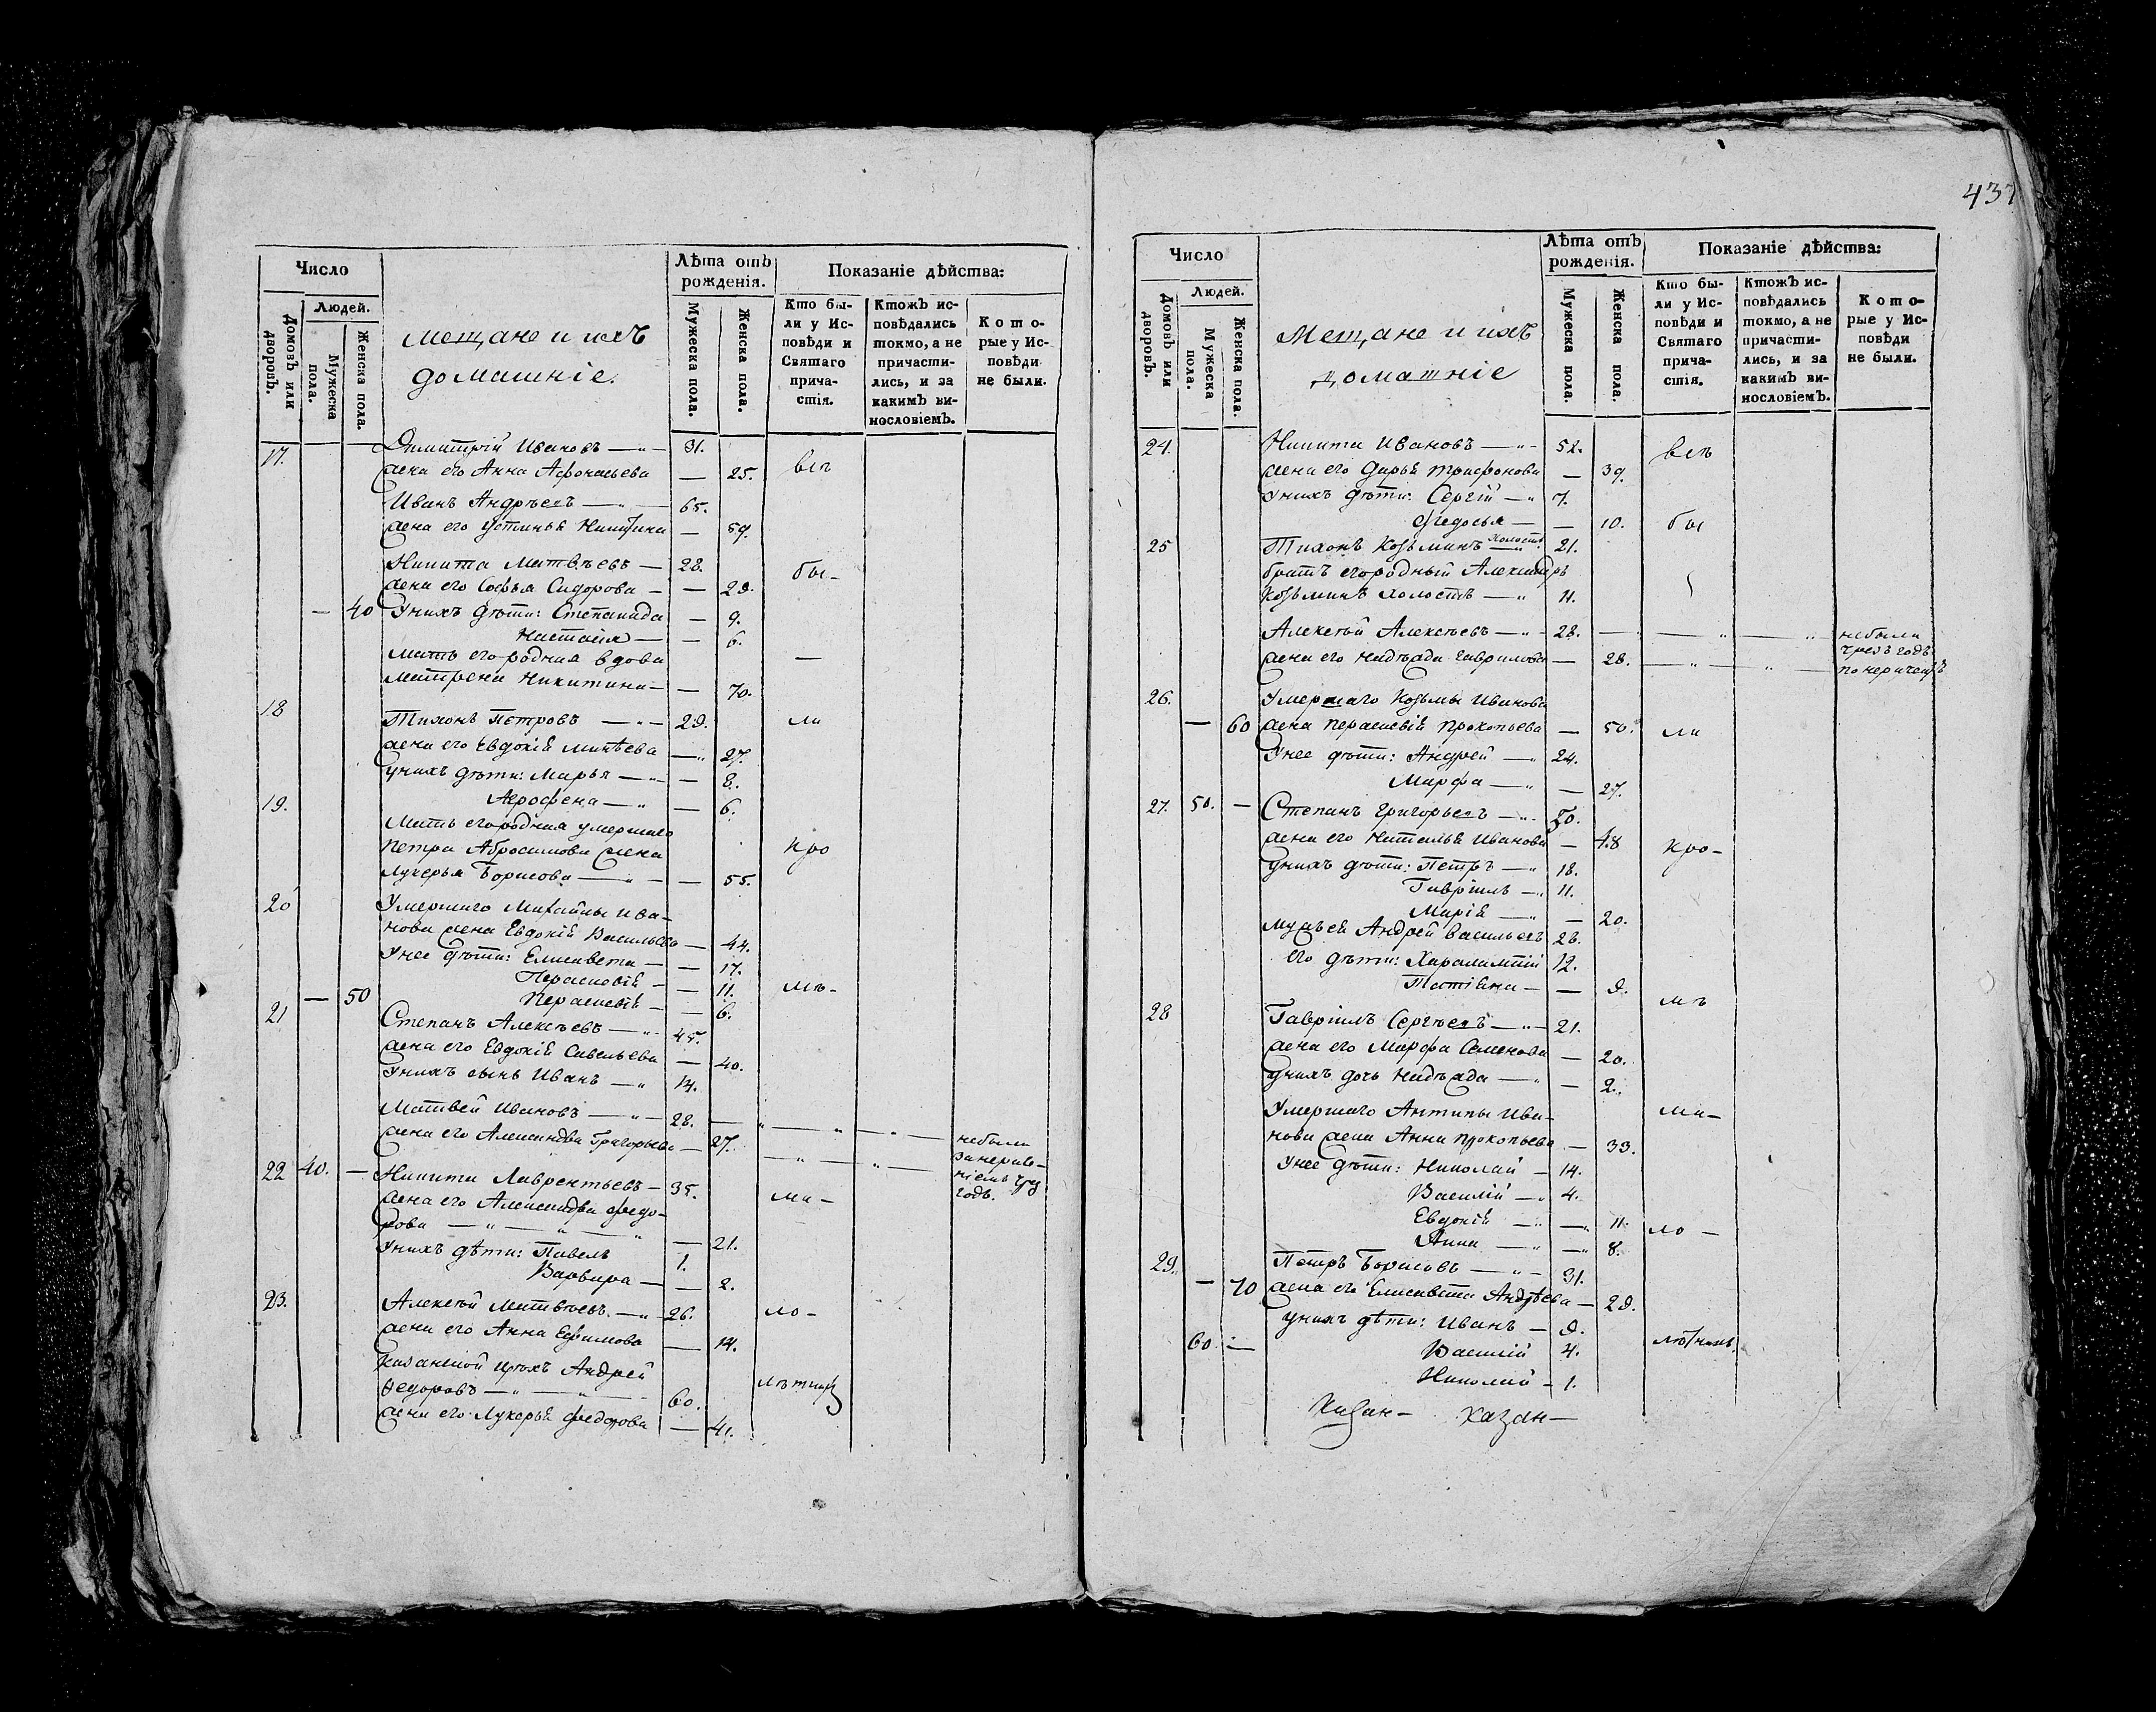 437
Число
Людей.
Домовъ или дворовъ.
Мужеска пола.
Женска пола.
мещане и ихъ
домашніе.
Лѣта отъ рожденія.
Мужеска пола.
Женска пола.
Показаніе дѣйства:
Кто были у Исповѣди и Святаго причастія.
Ктожъ исповѣдались токмо, а не причастились, и за какимъ винословіемъ.
Которые у Исповѣди не были.
17. Димитрій Ивановъ — 31.
жена его Анна Афонасьева — 25. всъ
Иванъ Андрѣевъ — 65.
жена его Устинья Никитина — 59.
Никита Матвѣевъ — 28.
жена его Софья Сидорова — 29. бы-
— 40 У нихъ дѣти: Степанида — 9.
Настасія — 6.
мать его родная вдова —
Матрена Никитина — 70.
18 Тихонъ Петровъ — 29. ли
жена его Евдокія Минѣева — 27.
у нихъ дѣти: Марья — 8.
19. Агрофена — 6.
Мать его родная умершаго
Петра Абросимова жена кро
Лукерья Борисова — 55.
20 Умершаго Михайлы Ива-
нова жена Евдокія Васильева — 44.
У нее дѣти: Елисавета — 17.
Параскевія — 11. мѣ-
— 50 Параскевія — 6.
21 Степанъ Алексѣевъ — 45.
жена его Евдокія Савельева — 40.
У нихъ сынъ Иванъ — 14.
Матвей Ивановъ — 28. — небыли
жена его Александра Григорьева — 27. —
годъ.
22 40. — Никита Лаврентьевъ — 35.
жена его Александра Федо- ма-
рова — 21.
У нихъ дѣти: Павелъ 1.
Варвара — 2.
23. Алексѣй Матвѣевъ — 26. ло-
жена его Анна Ефимова — 14.
Андрей
Федоровъ — 60. лѣтних
жена его Лукерья Федотова — 41.
Число
Людей.
Домовъ или дворовъ.
Мужеска пола.
Женска пола.
Мещане и ихъ
домашніе
Лѣта отъ рожденія.
Мужеска пола.
Женска пола.
Показаніе дѣйства:
Кто были у Исповѣди и Святаго причастія.
Ктожъ исповѣдались токмо, а не причастились, и за какимъ винословіемъ.
Которые у Исповѣди не были.
24. Никита Ивановъ — 52. всъ
жена его Дарья Трифонова — 39.
У нихъ дѣти: Сергій — 7.
Федосья — 10. бы
25 Тихонъ Козьминъ холостъ 21.
братъ его родный Александръ
Козьминъ холостъ — 11.
Алексѣй Алексѣевъ — 28. — небыли
жена его Надѣжда Гаврилова — 28. — чрезъ годъ
26. Умершаго Козьмы Иванова
— 60 жена Параскевія Прокопьева — 50. ли
У нее дѣти: Андрей — 24.
Марфа — 27.
27. 50. — Степанъ Григорьевъ — 50.
жена его Наталья Иванова — 48 кро-
У нихъ дѣти: Петръ — 18.
Гавріилъ — 11.
Марія — 20.
Мужъ ея Андрей Васильевъ 28.
его дѣти: Харалампій 12.
Татіяна — 9. мѣ
28 Гавріилъ Сергѣевъ — 21.
жена его Марфа Семенова — 20.
У нихъ дочь Надѣжда — 2.
Умершаго Антипы Ива- ма-
нова жена Анна Прокопьева — 33.
У нее дѣти: Николай — 14.
Василій — 4.
Евдокія — 11. ло-
Анна — 8.
29. Петръ Борисовъ — 31.
— 70 жена его Елисавета Андрѣева — 29.
У нихъ дѣти: Иванъ — 9.
60. — Василій 4. лѣтнихъ
Николай — 1.
Казан- Казан-